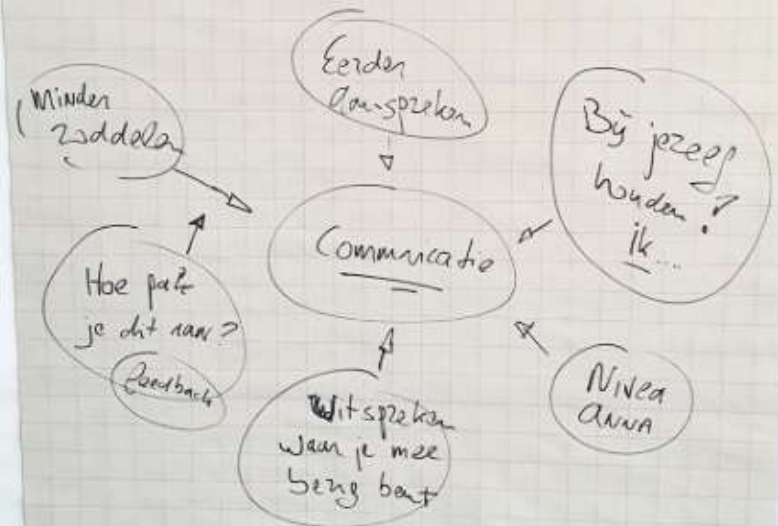 Eerder
aanspreken
Minder
roddelen
Bij jezelf
houden!
ik....
Communicatie
Hoe pak
je dit aan?
feedback
Nivea
ANNA
Uitspreken
waar je mee
bezig bent